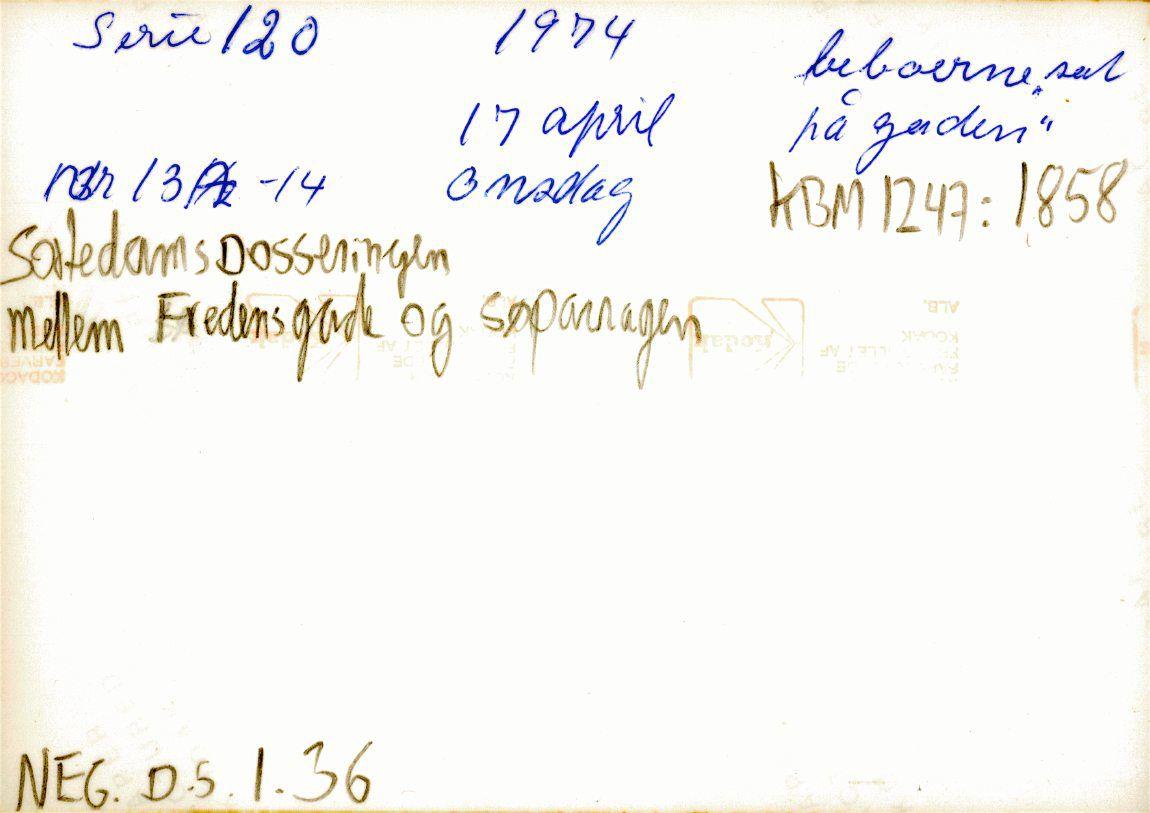 Serie 120
1974
17 april
onsdag
beboerne „sat
på gaden“
nr 13 -14
KBM 1247: 1858
Sortedams Dosseringen
mellem Fredensgade og søparragen
NEG. D.S. 1.36
kodak
kodak